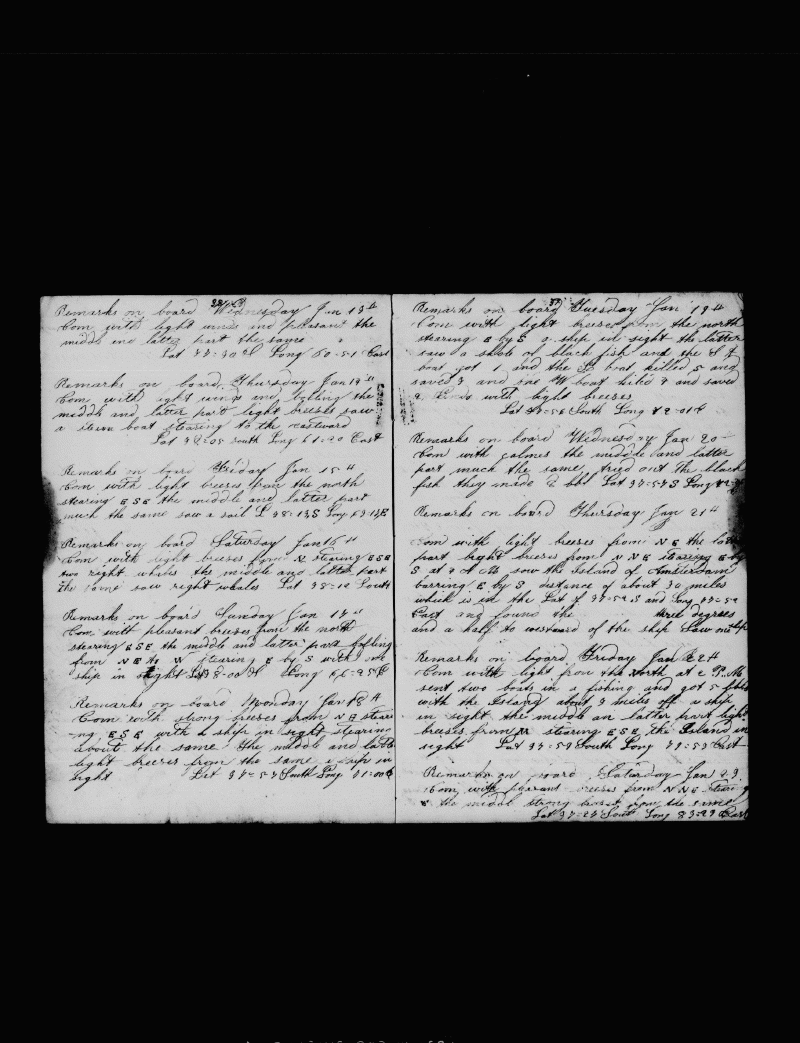 Remarks on board Wednesday Jan 13th
Com with light winds and pleasant the
middle and latter part the same
Lat 37=30 S Long 60=51 East
Remarks on board Thursday Jan 14th
Com with light winds and the
middle and later part light breeses saw
a stern boat stearing to the eastward
Lat 38=05 south Long 61=20 East
Remarks on board Friday Jan 15th
Com with light breeses from the north
stearing ESE the middle and latter part
much the same saw a sail L 38=13 S Long 63=13 E
Remarks on board Saturday Jan 16th
Com with light breeses from N stearing ESE
two right whales the middle and latter part
the same saw right whales Lat 38=12 South
Remarks on board Sunday Jan 17th
Com with pleasant breeses from the north
stearing ESE the middle and latter part
from NE to N stearing E by S with one
ship in sight Lat 38=00 S Long 66=25 E
Remarks on board Monday Jan 18th
Com with strong breeses from NE stear
ng ESE with a ship in sight stearing
about the same The middle and latter
light breeses from the same a ship in
sight Lat 37=57 South Long 71=00 E
Remarks on board Tuesday Jan 19th
Com with light breeses from the north
stearing E by S a ship in sight the latter
saw a shole of black fish and the
boat got 1 and the boat killed 5 and
saved 3 and one W boat killed and saved
2 Ends with light breeses
Lat South Long 72=01 E
Remarks on board Wednesday Jan 20
Com with calmes the middle and latter
part much the same tried out the black
fish they made 2 bbl Lat 37=57 S Long
Remarks on board Thursday Jan 21th
Com with light breeses from NE the latter
part light breeses from NNE stearing E by
S at AM saw the Island of Amsterdam
barring E by S distance of about 30 miles
which is in the Lat of 37=52 S and Long
East and found the three degrees
and a half to westward of the ship Saw one ship
Remarks on board Friday Jan 22th
Com with light from the North at 2 P.M
sent two boats in a fishing and got 5
with the Island about 3 miles off a ship
in sight the middle an latter part light
breeses from N stearing ESE the Island in
sight Lat 37=59 South Long 79=53 East
Remarks on board Saturday Jan 23
Com with pleasant breeses from NNE stearing
E the middle strong breeses from the same
Lat 37=23 South Long 83=29 East